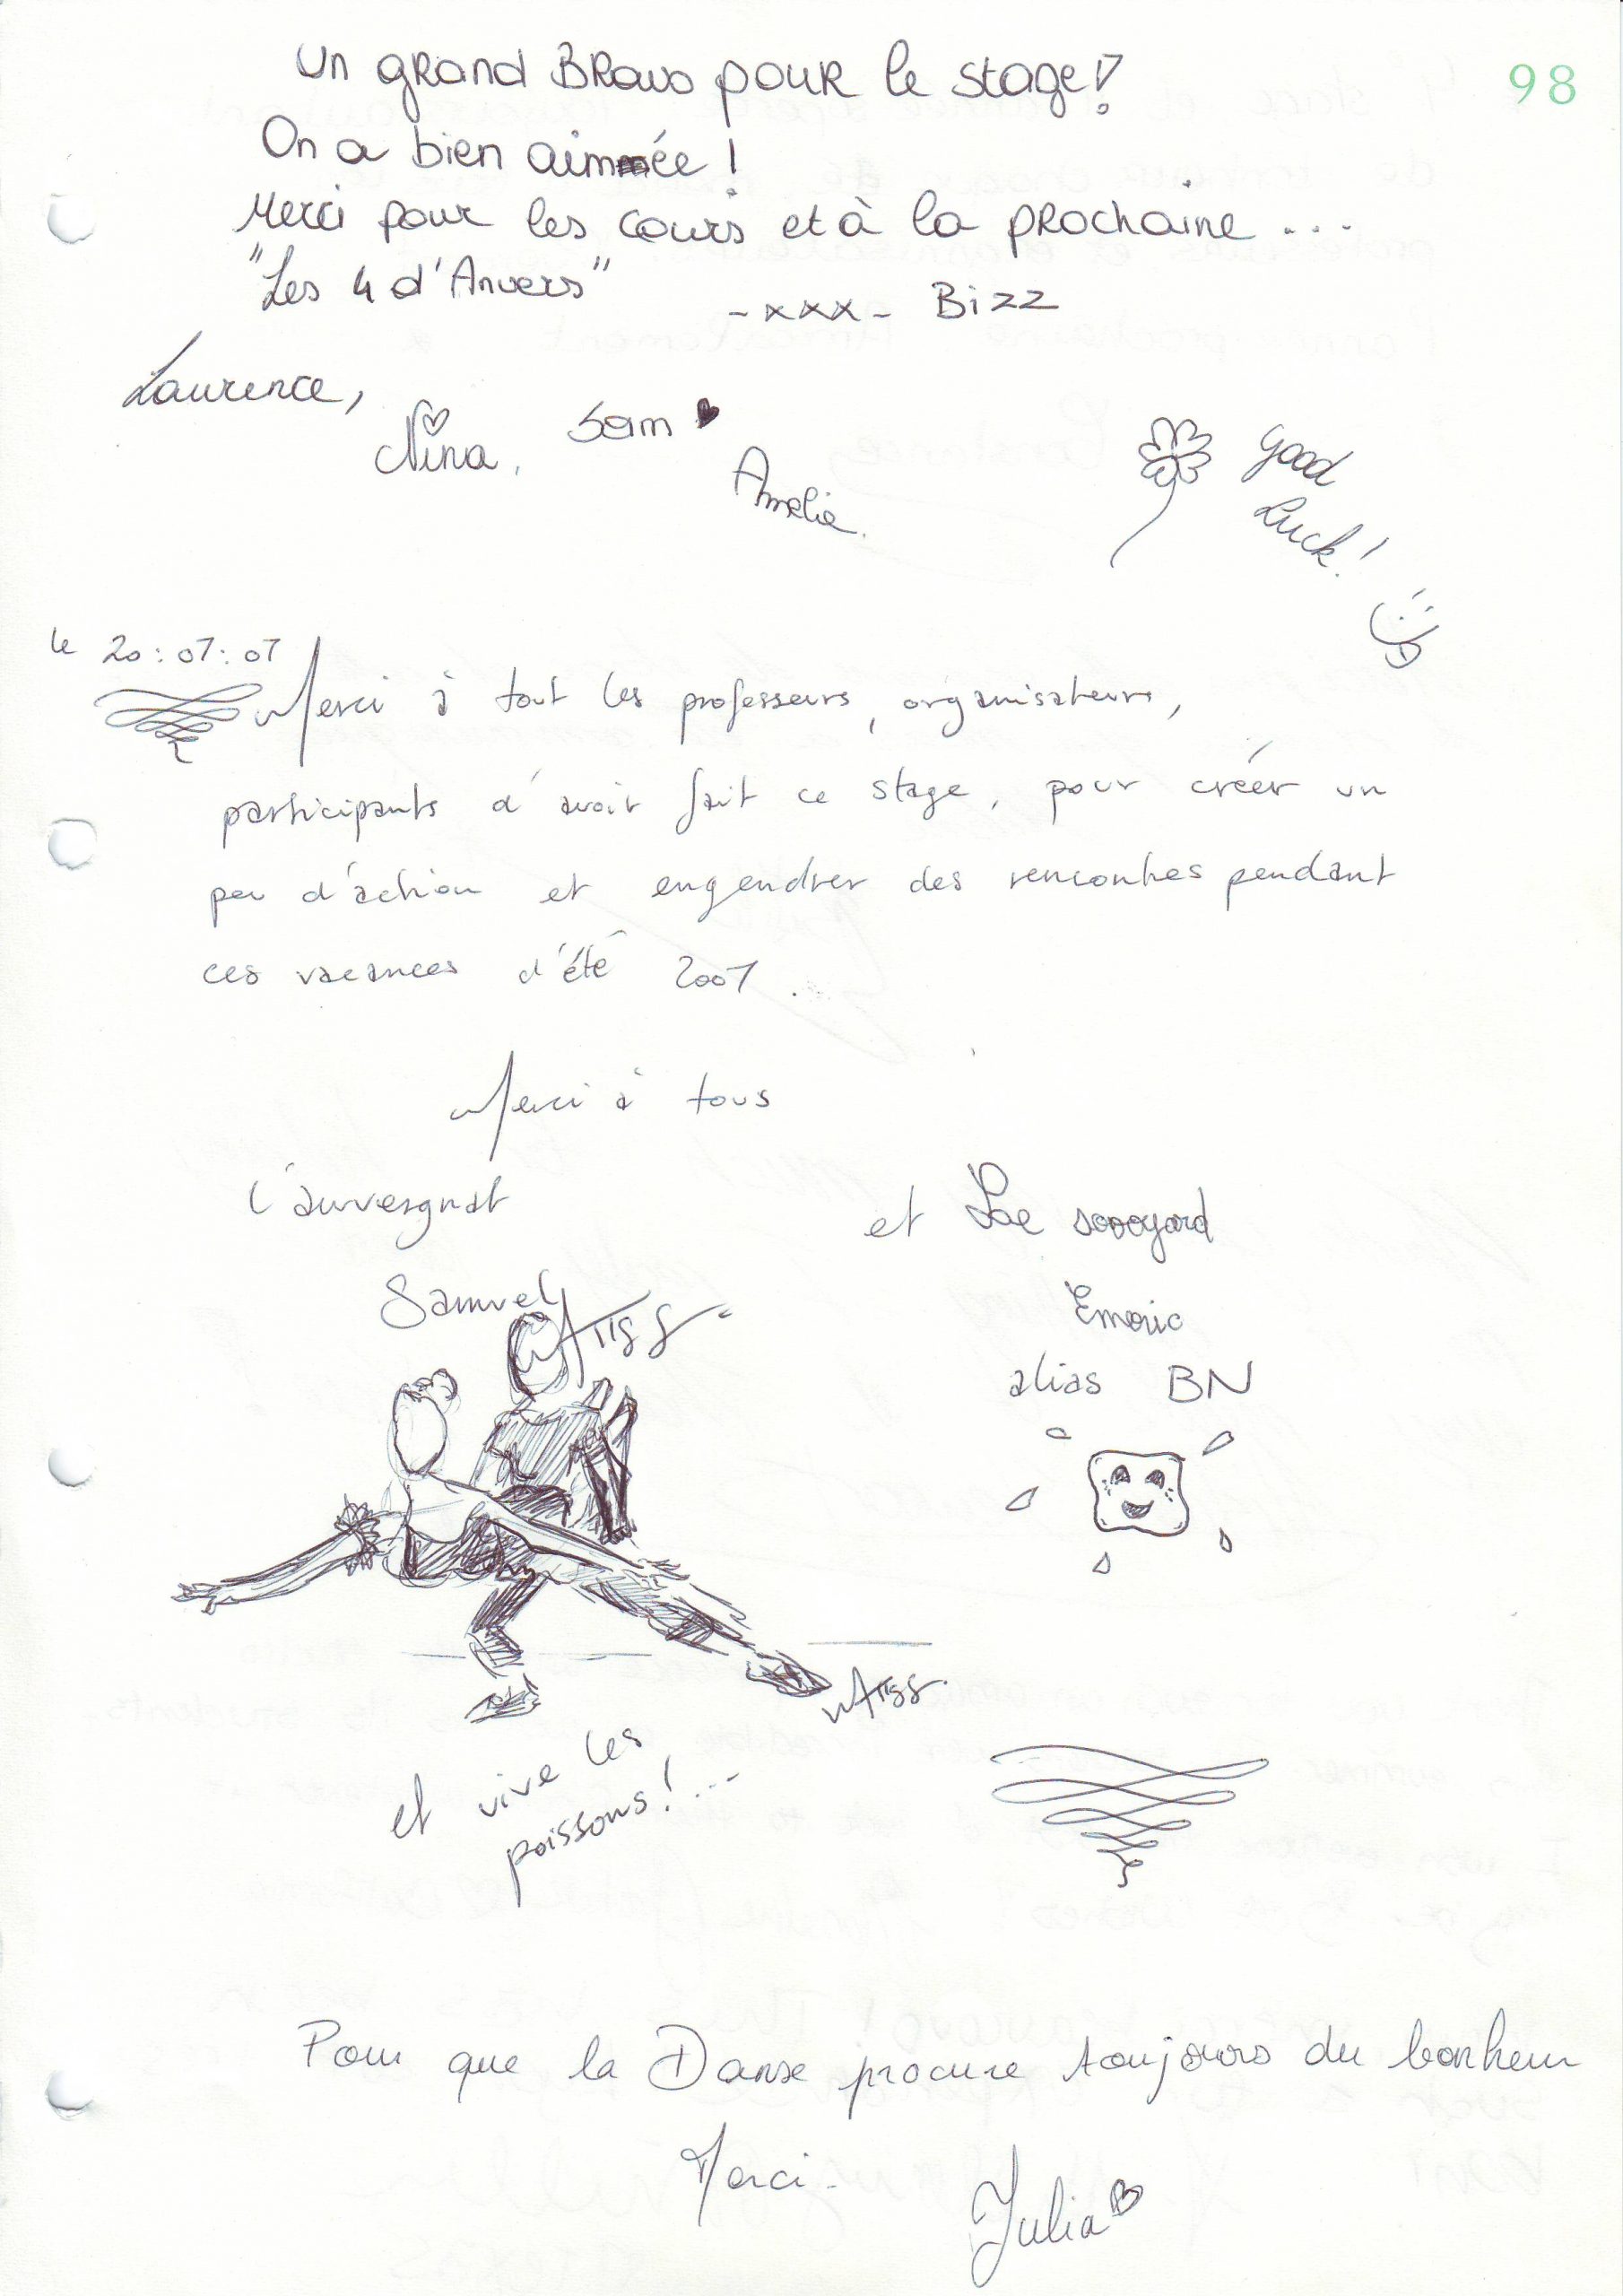 98
Un grand Bravo pour le stage!
On a bien aimée !
Merci pour les cours et à la prochaine ...
"Les 4 d'Anvers"
-xxx- Bizz
Laurence,
Nina.
Sam
Amelie.
Good
Luck!
le 20:07:07
Merci à tout les professeurs, organisateurs,
participants d'avoir fait ce stage, pour créer un
peu d'action et engendrer des rencontres pendant
ces vacances d'été 2007.
Merci à tous
l'auvergnat
et Le savoyard
Samuel
Emeric
alias BN
et vive les
poissons!...
Pour que la Danse procure toujours du bonheur
Merci.
Julia